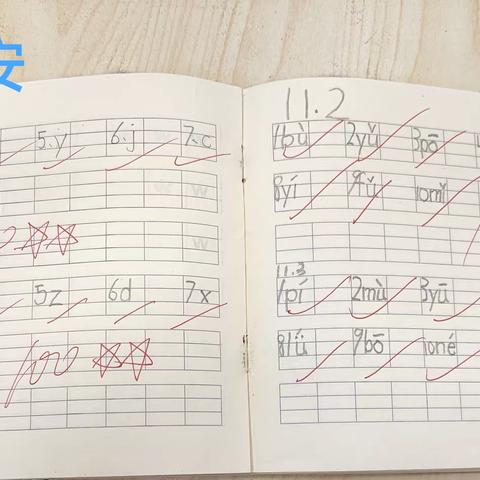 安
5.y 6.j 7.c
5z 6d 7x
100
11.2
1pù 2yǔ 3pō
8yí 10mǐ
11.3
1pí 2mù 3yū
8lǘ 9bō 10né